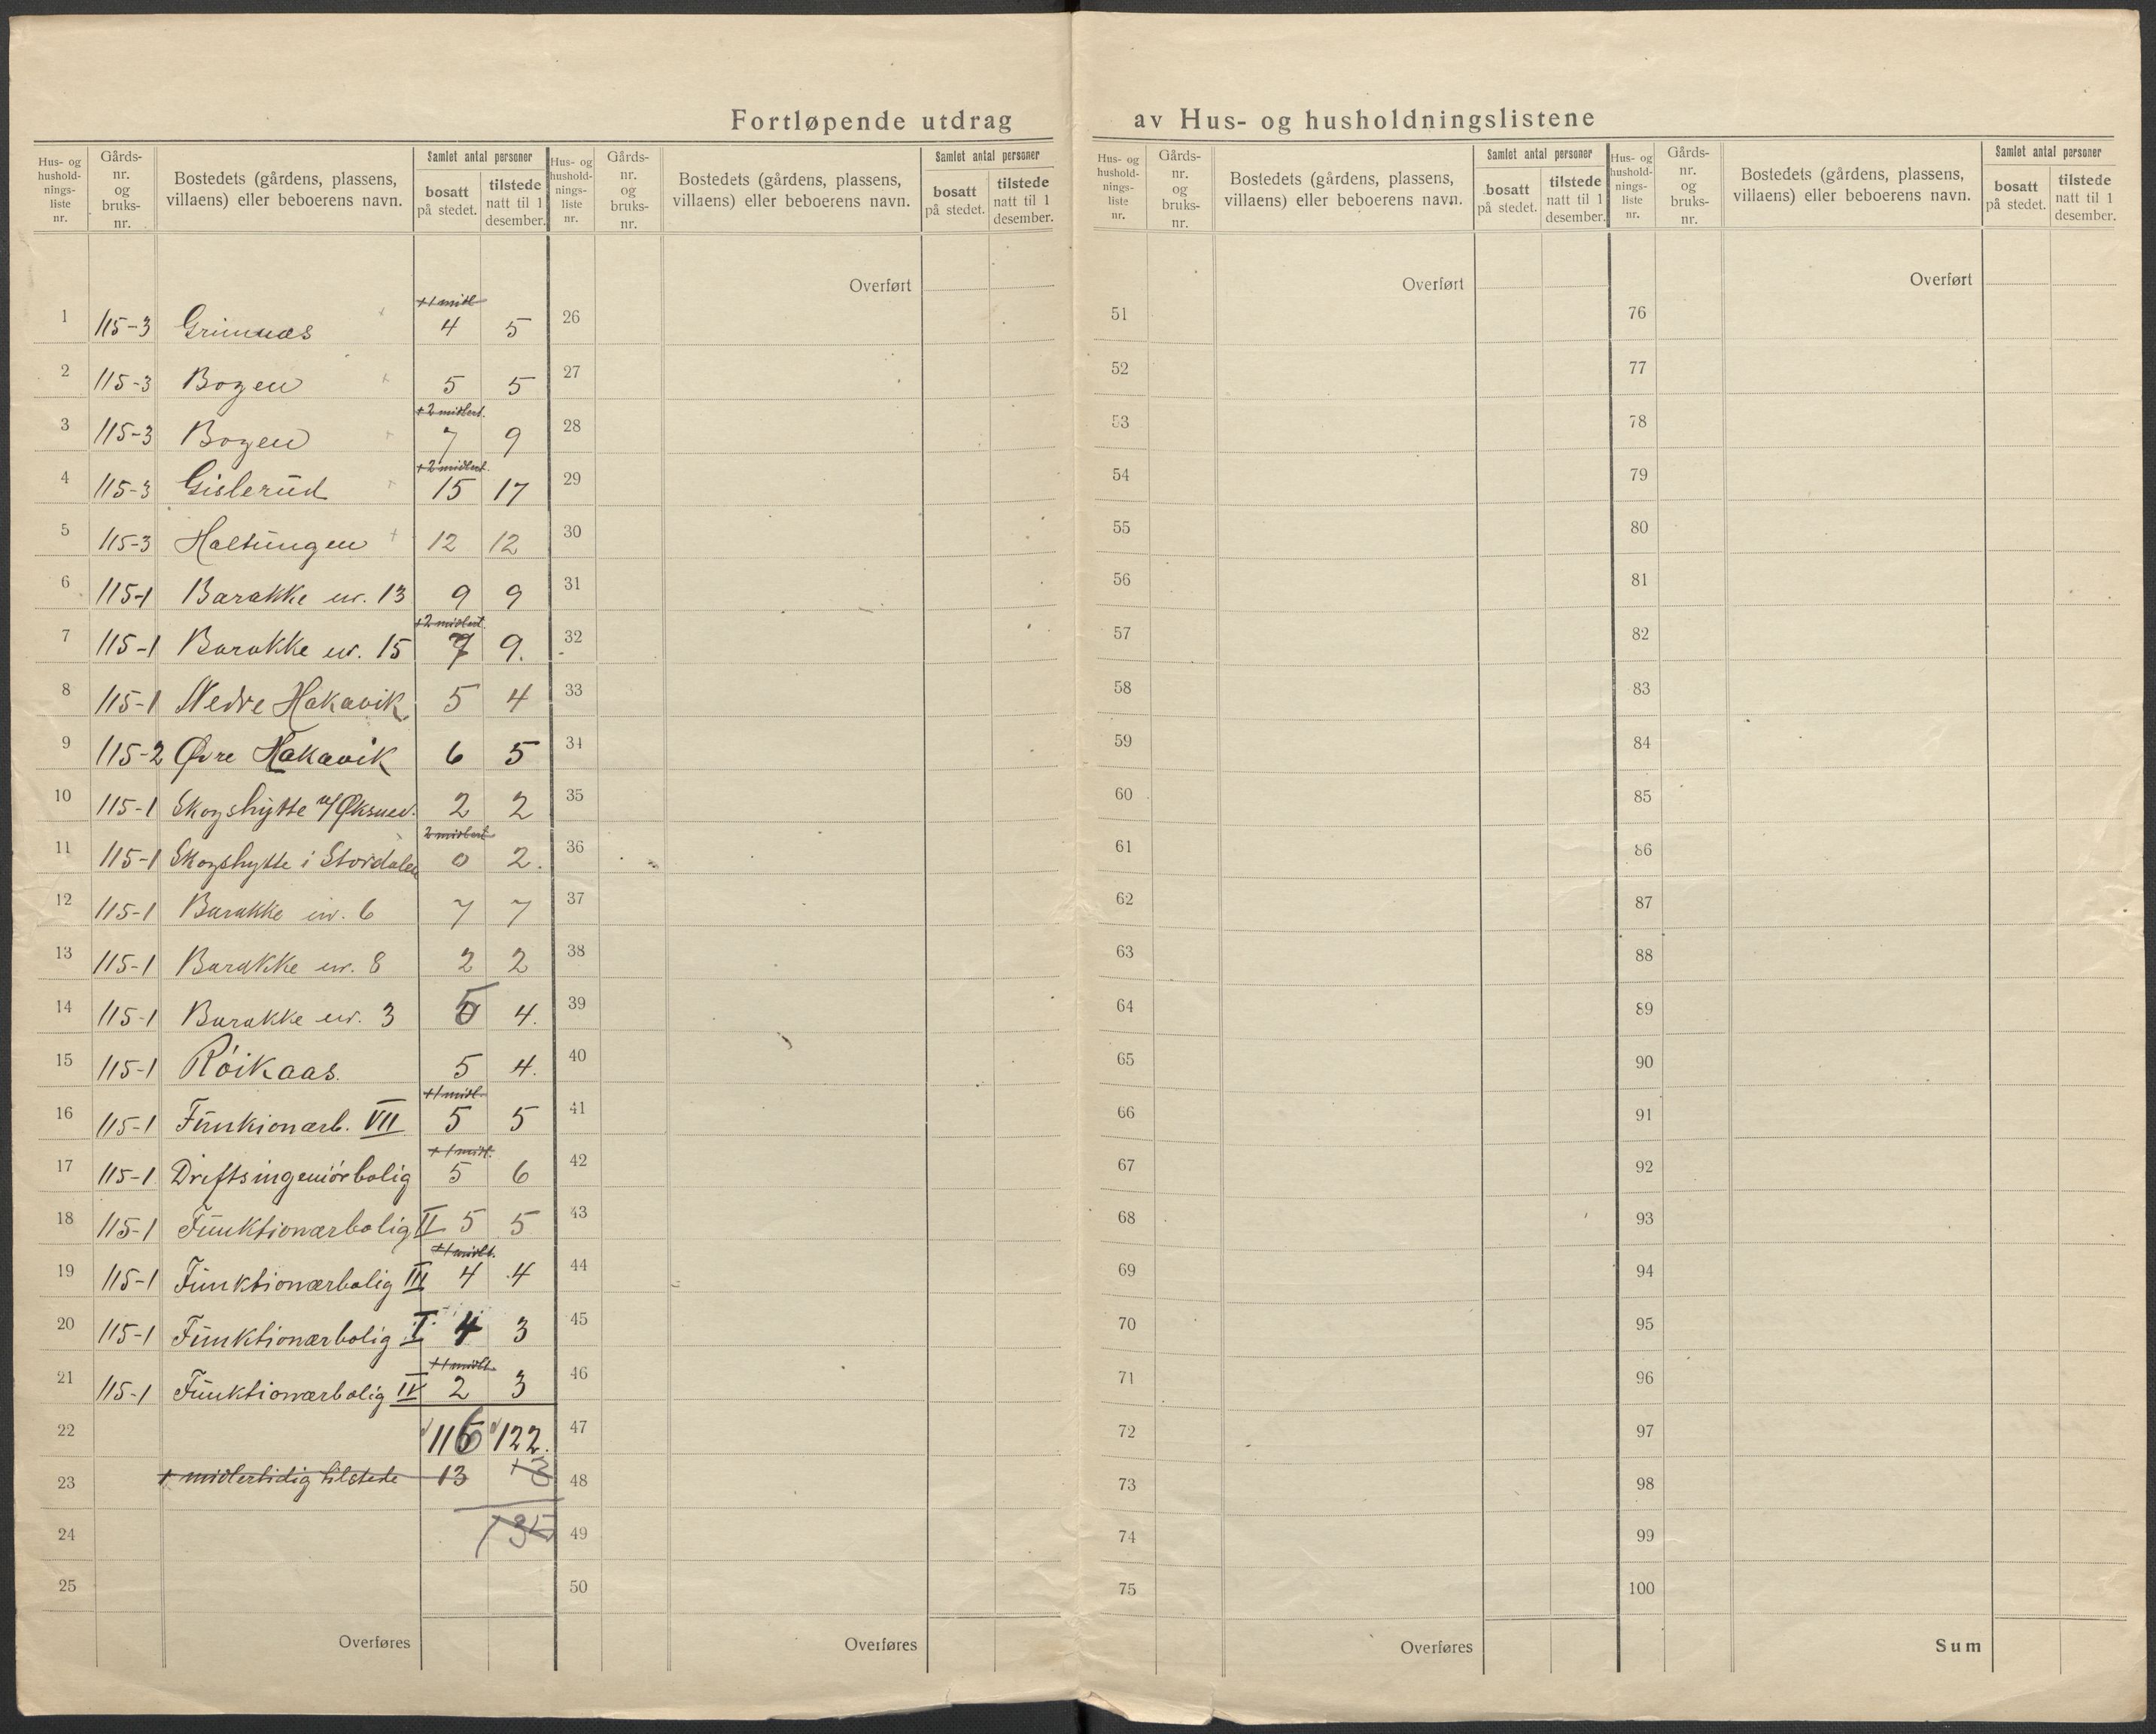 Fortløpende utdrag av Hus- og husholdningslistene
Hus- og hushold-nings-liste nr. Gårds-nr. og bruks-nr. Bostedets (gårdens, plassens, villaens) eller beboerens navn. Samlet antal personer bosatt på stedet. tilstede natt til 1 desember.
Hus- og hushold-nings-liste nr. Gårds-nr. og bruks-nr. Bostedets (gårdens, plassens, villaens) eller beboerens navn. Samlet antal personer bosatt på stedet. tilstede natt til 1 desember.
Hus- og hushold-nings-liste nr. Gårds-nr. og bruks-nr. Bostedets (gårdens, plassens, villaens) eller beboerens navn. Samlet antal personer bosatt på stedet. tilstede natt til 1 desember.
Hus- og hushold-nings-liste nr. Gårds-nr. og bruks-nr. Bostedets (gårdens, plassens, villaens) eller beboerens navn. Samlet antal personer bosatt på stedet. tilstede natt til 1 desember.
Overført Overført Overført
+1 midl
1 115-3 Grimnæs 4 5 26 51 76
2 115-3 Bogen 5 5 27 52 77
+2 midlert.
3 115-3 Bogen 7 9 28 53 78
+2 midlert.
4 115-3 Gislerud 15 17 29 54 79
5 115-3 Haltungen 12 12 30 55 80
6 115-1 Barakke nr. 13 9 9 31 56 81
+2 midlert.
7 115-1 Barakke nr. 15 7 9. 32 57 82
8 115-1 Nedre Hakavik 5 4 33 58 83
9 115-2 Øvre Hakavik 6 5 34 59 84
10 115-1 Skogshytte v/Øksnev. 2 2 35 60 85
2 midlert
11 115-1 Skogshytte i Stordalen 0 2. 36 61 86
12 115-1 Barakke nr. 6 7 7 37 62 87
13 115-1 Barakke nr. 8 2 2 38 63 88
14 115-1 Barakke nr. 3 5 4. 39 64 89
15 115-1 Röikaas. 5 4. 40 65 90
+1 midl.
16 115-1 Funkionærb. VII 5 5 41 66 91
+1 midl.
17 115-1 Driftsingeniörbolig 5 6 42 67 92
18 115-1 Funktionærbolig II 5 5 43 68 93
+1 midlt.
19 115-1 Funktionærbolig III 4 4 44 69 94
20 115-1 Funktionærbolig I 4 3 45 70 95
+1 midlt.
21 115-1 Funktionærbolig IV 2 3 46 71 96
22 116 122. 47 72 97
23 + midlertidig tilstede 13 48 73 98
24 135 49 74 99
25 50 75 100
Overføres Overføres Overføres Sum